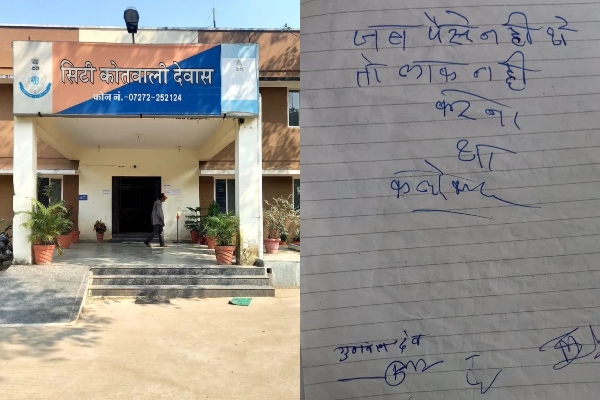 सिटी कोतवाली देवास
फोन नं.-07272-252124
जब पैसे नही थे
तो लाक नही
करना
था
कलेक्टर